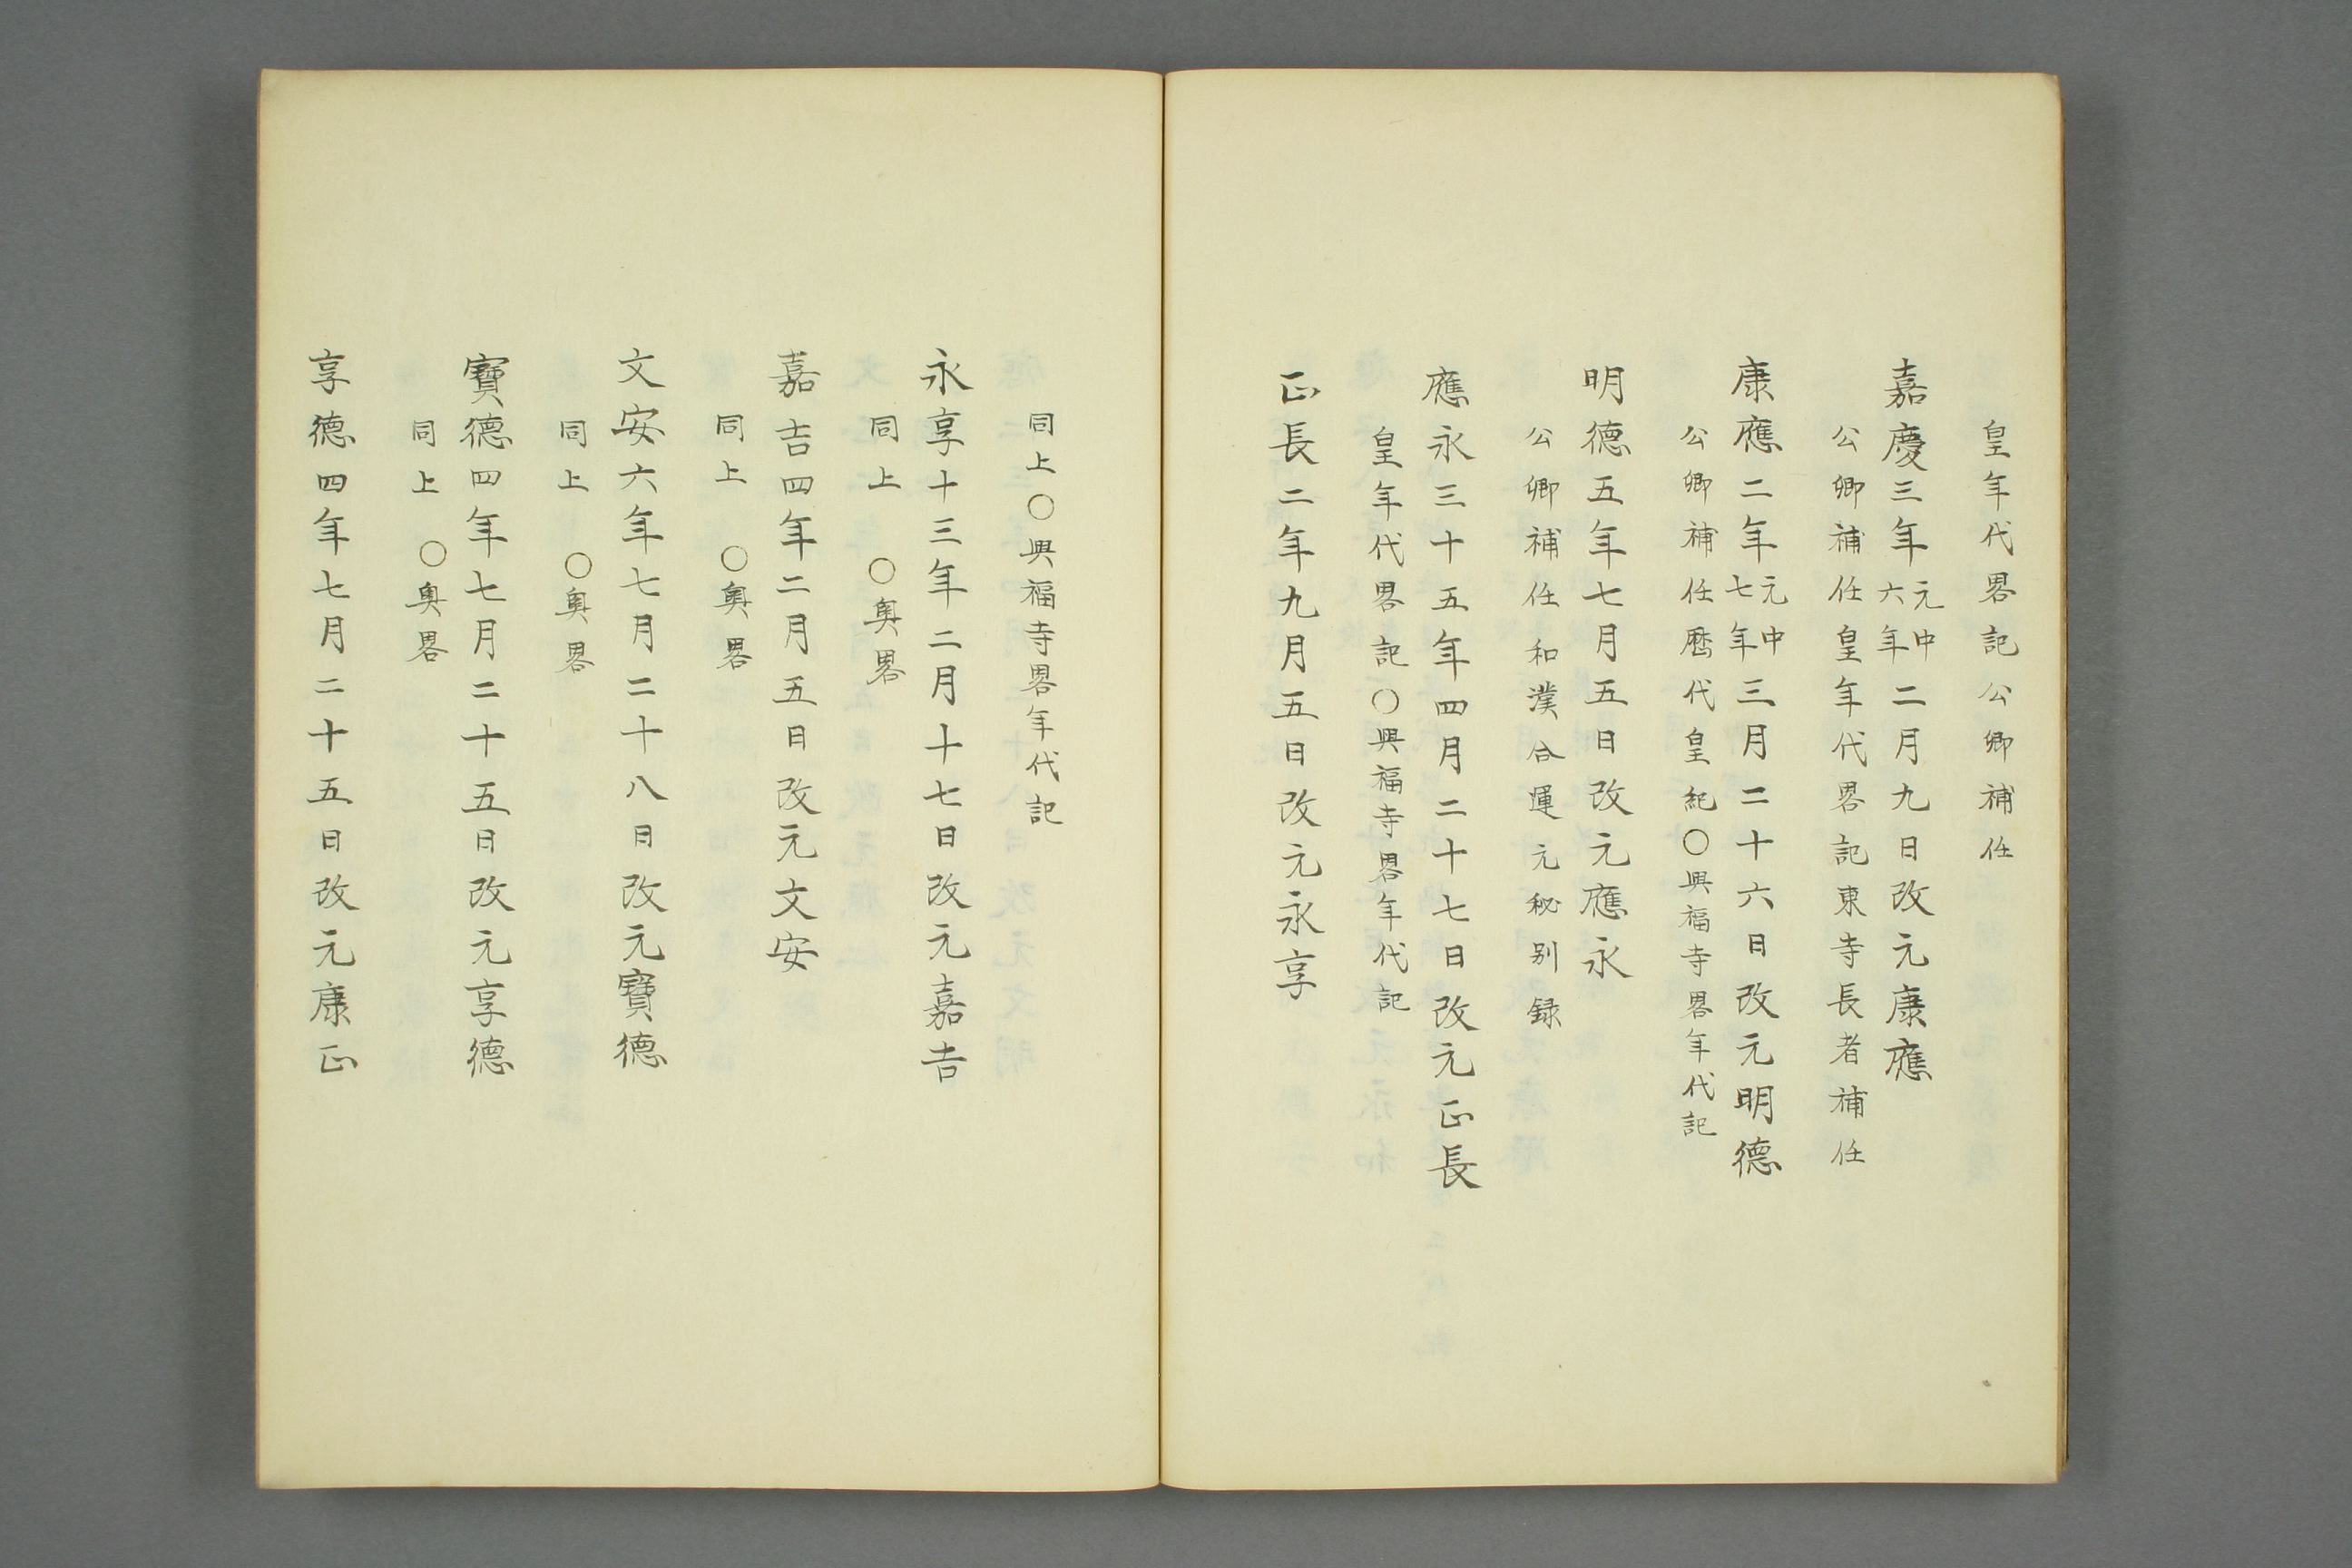 皇年代畧記公卿補任
嘉慶三年元中六年二月九日改元康應
公卿補任皇年代畧記東寺長者補任
康應二年元中七年三月二十六日改元明德
公卿補任曆代皇紀〇興福寺畧年代記
明德五年七月五日改元應永
公卿補任和漢合運元秘别録
應永三十五年四月二十七日改元正長
皇年代畧記〇興福寺畧年代記
正長二年九月五日改元永享
同上〇興福寺畧年代記
永享十三年二月十七日改元嘉吉
同上〇奥畧
嘉吉四年二月五日改元文安
同上〇奥畧
文安六年七月二十八日改元寶德
同上〇奥畧
寶德四年七月二十五日改元享德
同上〇奥畧
享德四年七月二十五日改元康正